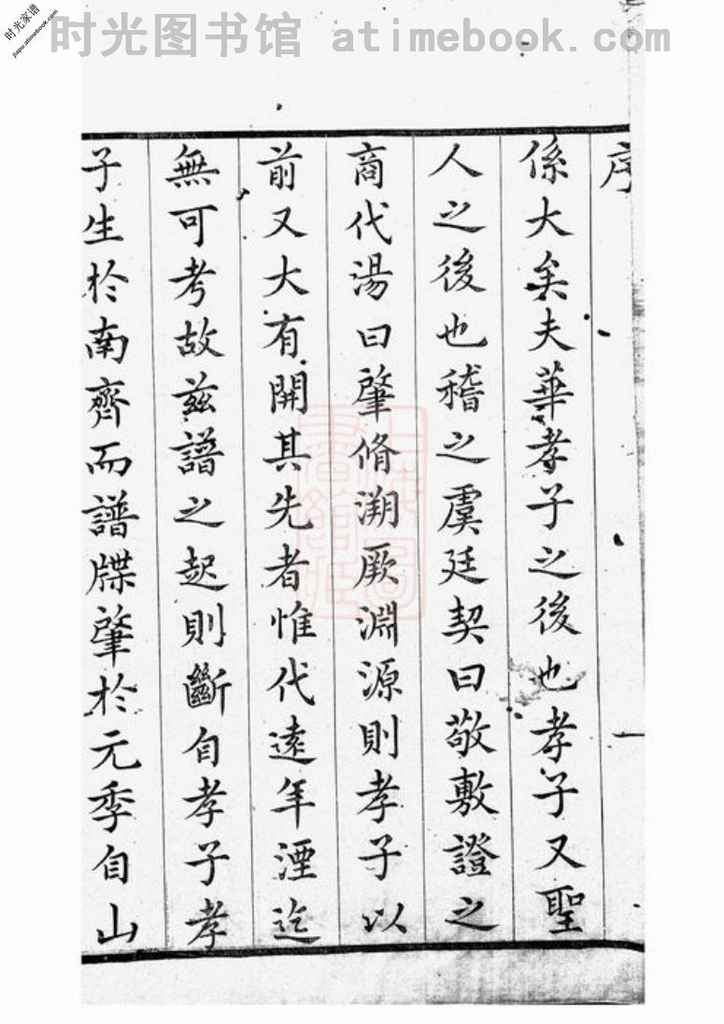 时光家谱
jiapu.atimebook.com
时光图书馆 atimebook.com
序
一
係大矣夫華孝子之後也孝子又聖
人之後也稽之虞廷契曰敬敷證之
商代湯曰肇脩溯厥淵源則孝子以
前又大有開其先者惟代遠年湮迄
無可考故兹譜之起則斷自孝子孝
子生於南齊而譜牒肇於元季自山